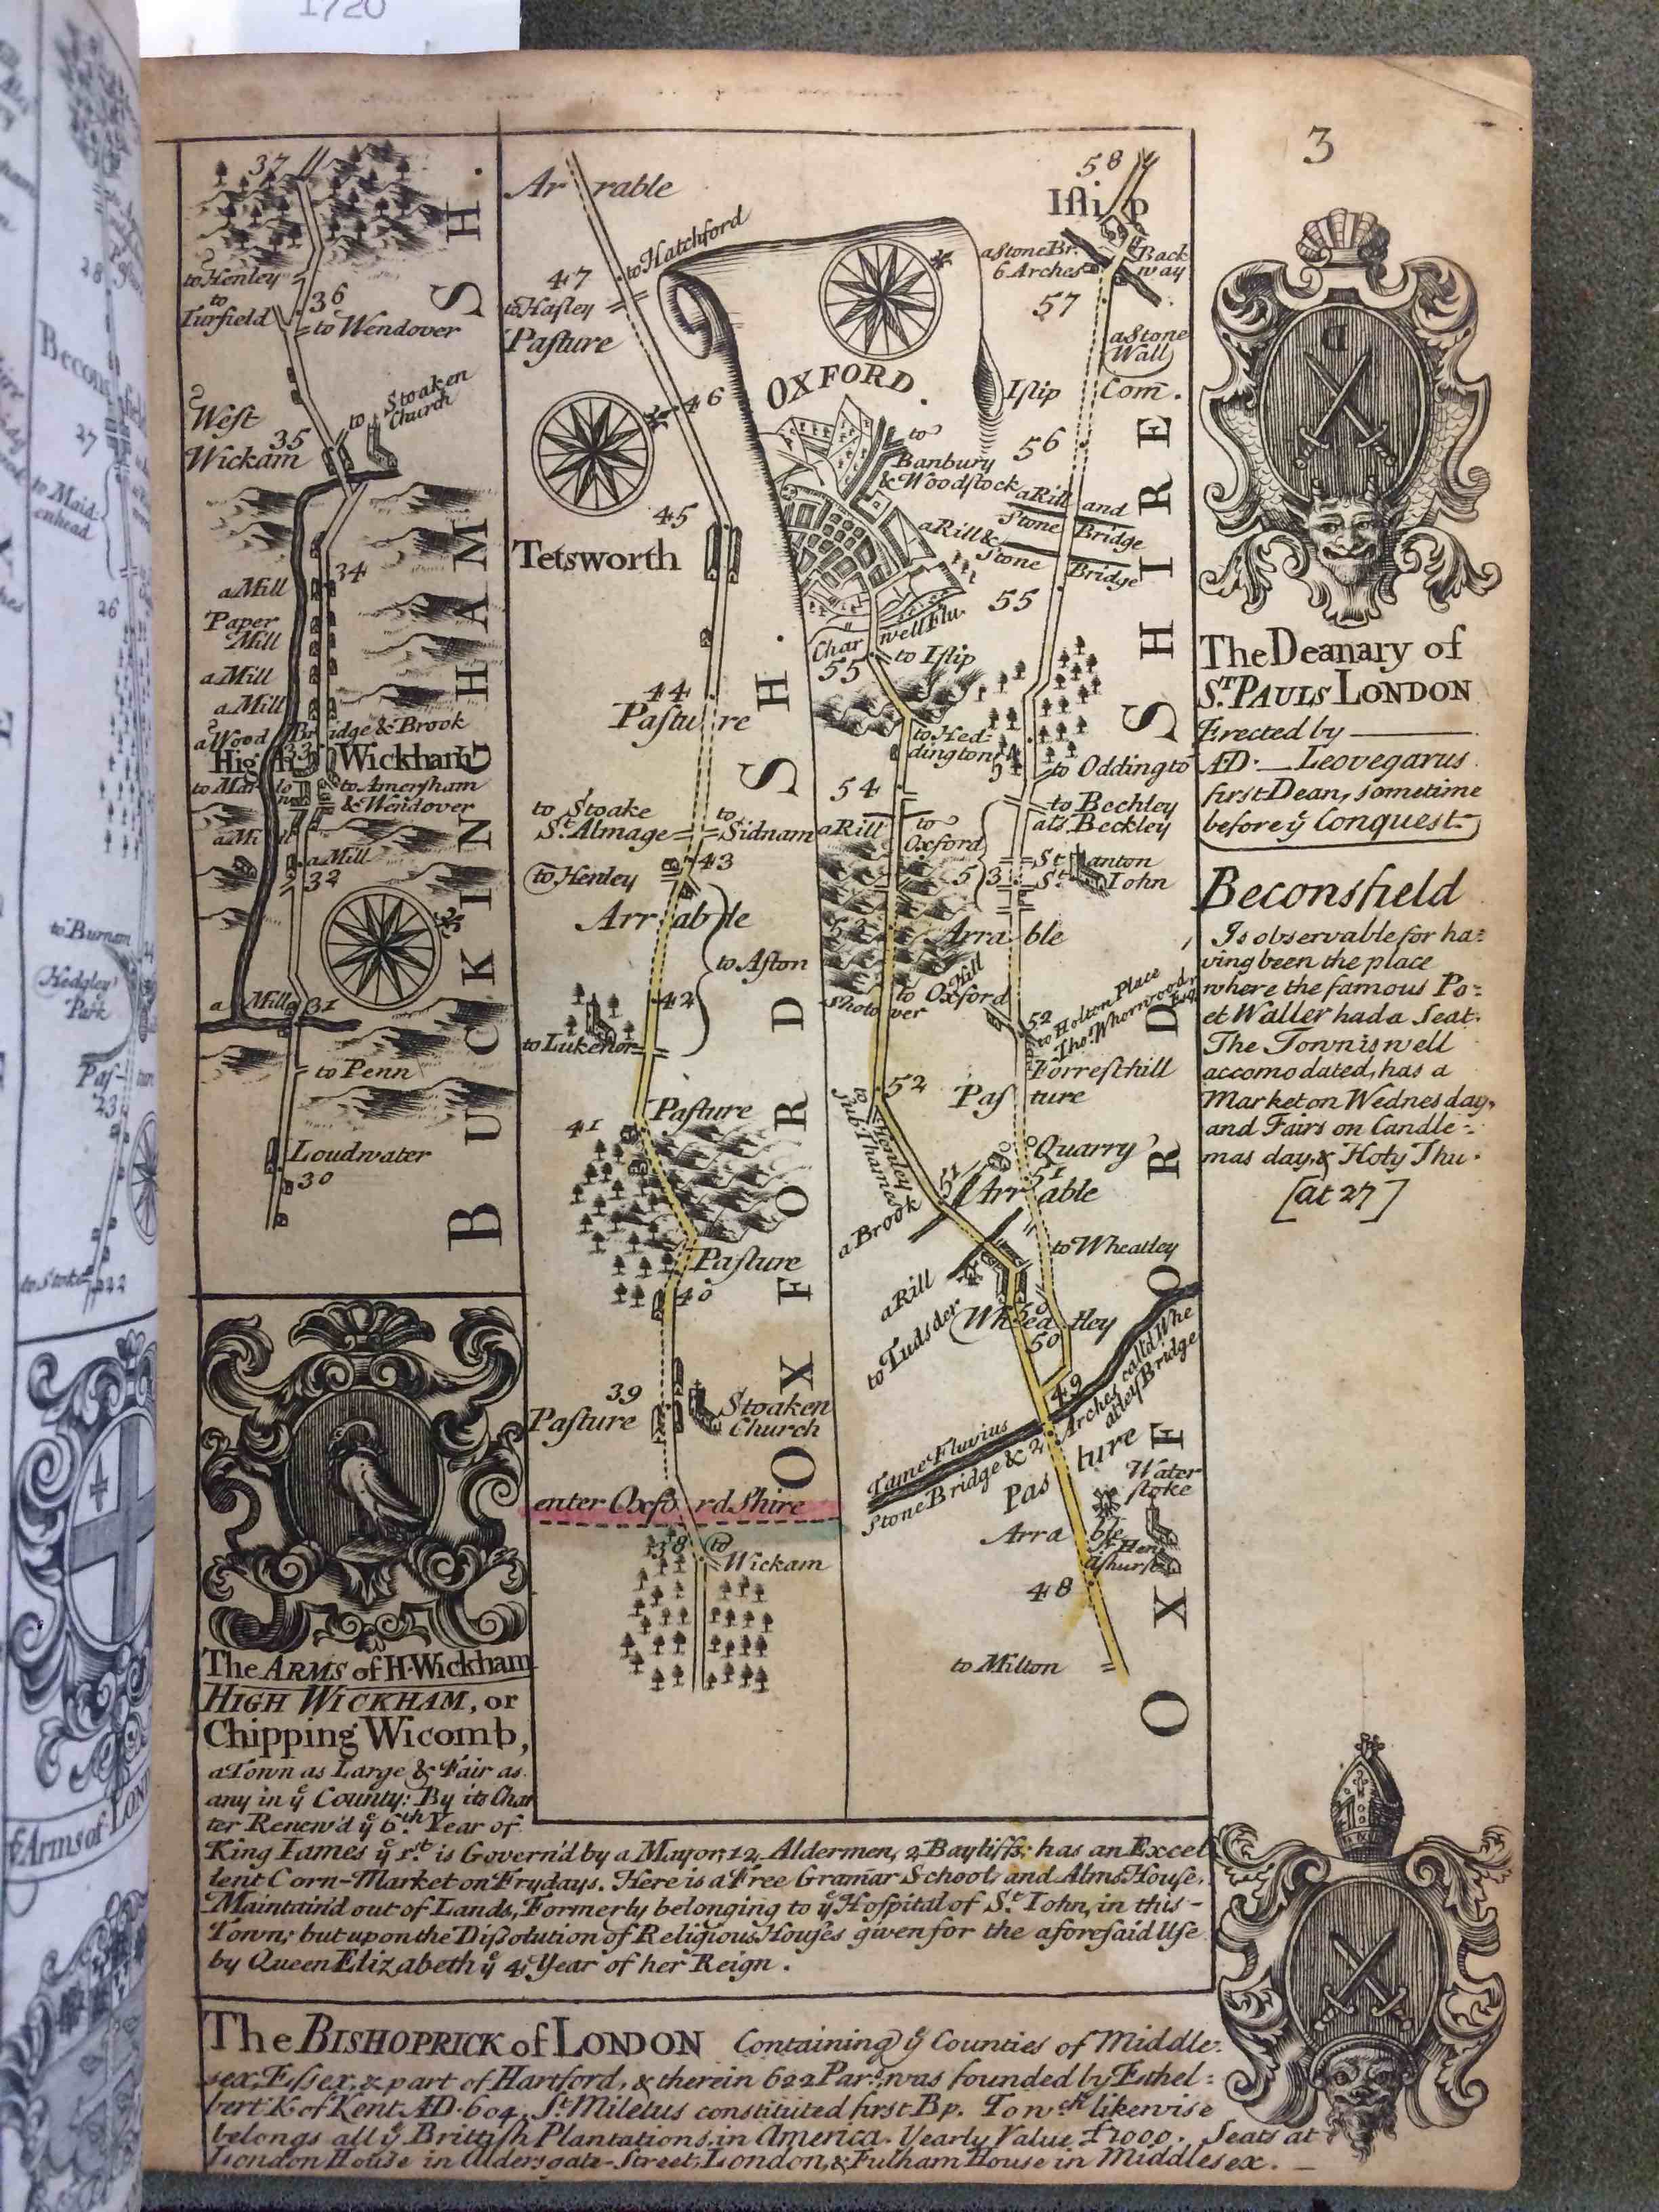 1720
3
37
to Henley
to
Turfield
36
to Wendover
West
Wickam
35
to Stoaken
Church
34
a Mill
Paper
Mill
a Mill
a Mill
a Wood Bridge & Brook
33
High Wickham
to Marlo
to Amersham
& Wendover
a Mill
a Mill
32
a Mill
31
to Penn
Loudwater
30
BUCKINGHAMSH.
Arrable
to Hatchford
47
to Hasley
Pasture
46
45
Tetsworth
44
Pasture
to Stoake
St. Almage
to
Sidnam
43
to Henley
Arrable
to Aston
42
to Lukenor
41
Pasture
Pasture
40
39
Pasture
Stoaken
Church
enter Oxford Shire
38
to
Wickam
OXFORDSH.
OXFORD.
to
Banbury
& Woodstock
Charwell Flu.
55
to Islip
to Hed-
dington
54
a Rill
to
Oxford
53
Shotover Hill
52
to Henley
sub Thames
a Brook
51
a Rill
to Tudsder
Wheatley
50
49
Tame Fluvius
Stone Bridge & 2 Arches call'd Whe
atley Bridge
Pasture
Water
stoke
Arrable
48
to Milton
58
Islip
a Stone Br.
6 Arches
Back
way
57
a Stone
Wall
Islip Com.
56
a Rill and
Stone Bridge
a Rill &
Stone Bridge
55
to Oddington
to Bechley
als Beckley
53
Stanton
St. Iohn
Arrable
to Oxford
52
to Holton Place
Tho. Whorwood
Esq.
Forresthill
Pasture
Quarry
51
Arrable
to Wheatley
50
OXFORDSHIRE
The Deanary of
ST. PAULS LONDON
Erected by
AD. Leovegarus
first Dean, sometime
before ye Conquest
Beconsfield
Is observable for ha=
ving been the place
where the famous Po=
et Waller had a Seat.
The Town is well
accomodated, has a
Market on Wednesday,
and Fairs on Candle=
mas day, & Holy Thu.
[at 27]
The ARMS of H. Wickham
HIGH WICKHAM, or
Chipping Wicomb,
a Town as Large & Fair as
any in ye County: By its Char
ter Renew'd ye 6th Year of
King Iames ye 1st. is Govern'd by a Mayor, 12 Aldermen, 2 Bayliffs: has an Excel
lent Corn-Market on Frydays. Here is a Free Gramar School, and Alms House,
Maintain'd out of Lands, Formerly belonging to ye Hospital of St. Iohn, in this
Town; but upon the Dissolution of Religious Houses given for the aforesaid Use
by Queen Elizabeth ye 4 Year of her Reign.
The BISHOPRICK of LONDON Containing ye Counties of Middle=
sex, Essex, & part of Hartford, & therein 622 Pars. was founded by Ethel=
bert K of Kent AD. 604. St. Miletus constituted first Bp. To wch likewise
belongs all ye Brittish Plantations in America. Yearly Value £1000. Seats at
London House in Aldersgate-Street, London, & Fulham House in Middlesex.
28
Becons field
27
to Maid-
enhead
26
to Burnam
Hedgley
Park
23
to Stoke
22